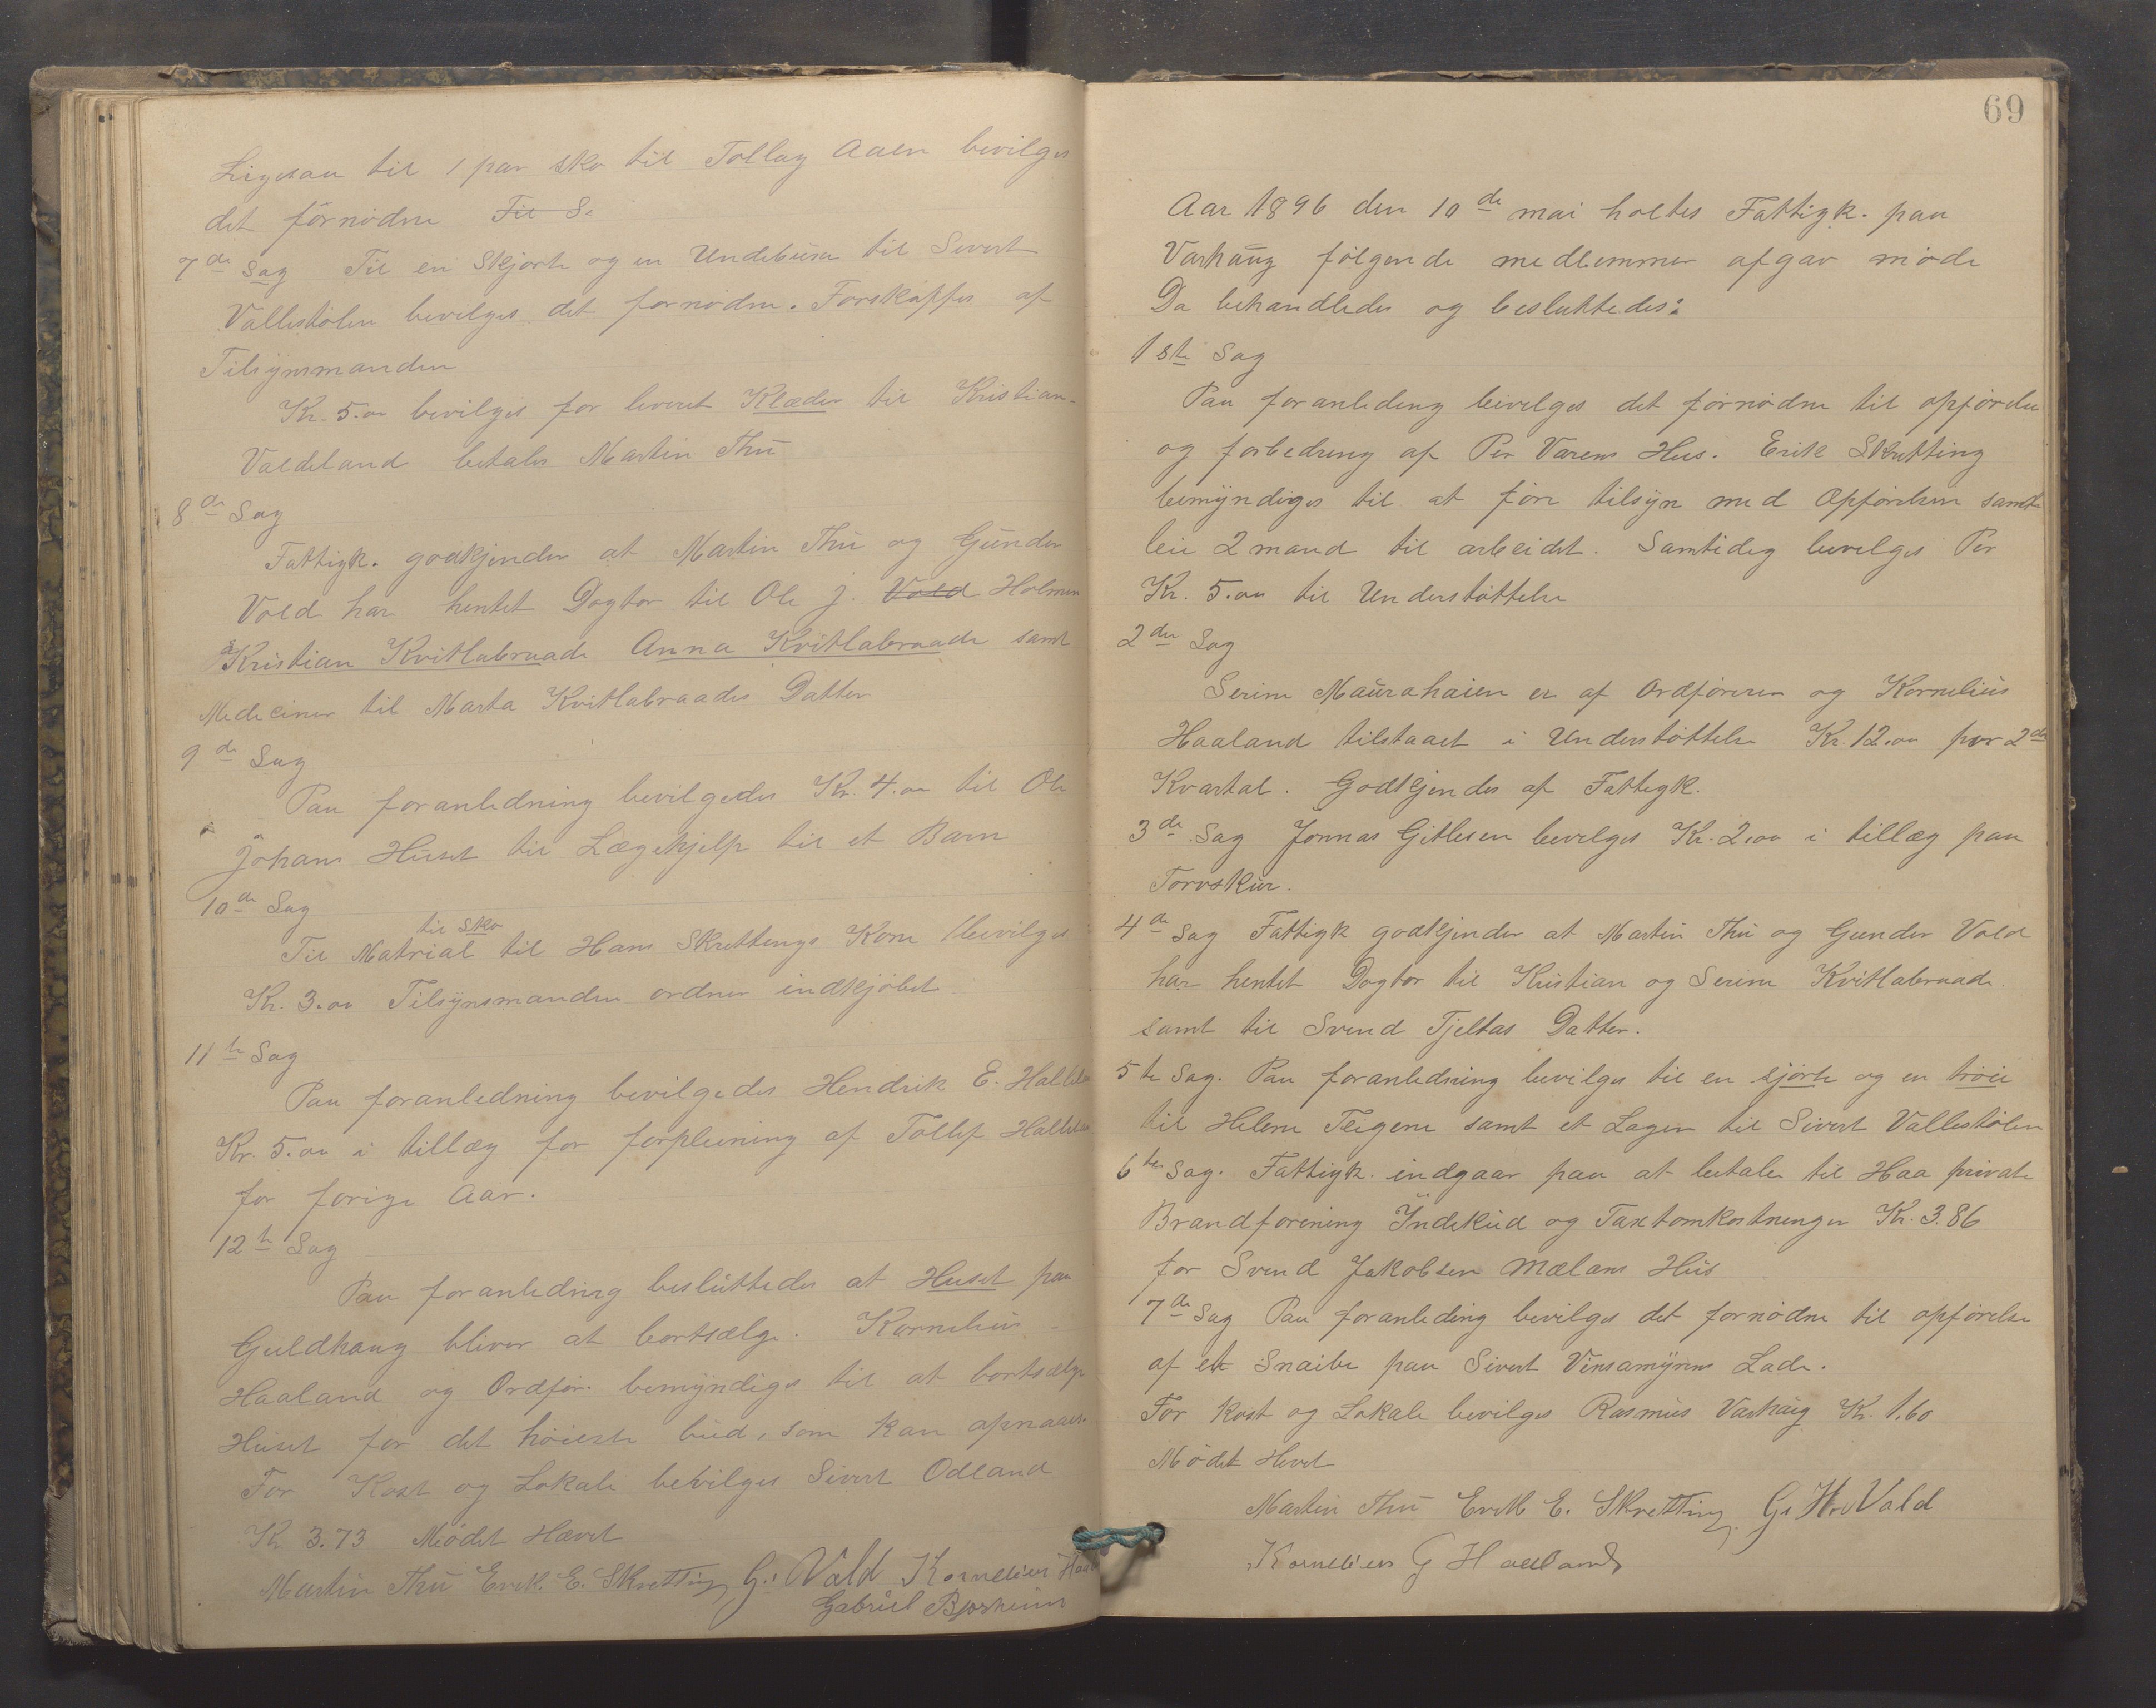 Ligesaa til 1 par sko til Tollag Aaen bevilges
det förnødne Til S.
7de Sag Til en Skjorte og en Undebuxe til Sivert
Vallestølen bevilges det fornødne. Forskaffes af
Tilsynsmanden
Kr. 5.00 bevilges for leveret Klæder til Kristian
Valdeland betales Martin Thu
8de Sag
Fattigk. godkjender at Martin Thu og Gunder
Vold har hentet Dogtor til Ole J. Vold Holmen
Kristian Kvitlabraade Anna Kvitlabraade samt
Mediciner til Marta Kvitlabraades Datter
9de Sag
Paa foranledning bevilgedes Kr. 4.00 til Ole
Johans Huset til Lægehjelp til et Barn
10de Sag
til Sko
Til Matrial til Hans Skrettings Kone bevilges
Kr. 3.00 Tilsynsmanden ordner indkjøbet
11te Sag
Paa foranledning bevilgedes Hendrik E.
Kr. 5.00 i tillæg for forpleining af Tollef
for forige Aar.
12te Sag
Paa foranledning besluttedes at Huset paa
Guldhaug bliver at bortsælge. Kornelius
Haaland og Ordfør. bemyndiges til at bortsælge
Huset for det høieste bud, som kan opnaaes.
For Kost og Lokale bevilges Sivert Odland
Kr 3.73 Mødet Hævet
Martin Thu Erik E. Skretting G. Vold Kornelius Haal
Gabriel Bjorheim
69
Aar 1896 den 10de mai holtes Fattigk. paa
Varhaug følgende medlemmer afgav møde
Da behandledes og besluttedes:
1ste Sag
Paa foranleding bevilges det førnødne til opførelse
og forbedring af Per Varens Hus. Erik Skretting
bemyndiges til at føre tilsyn med Opførelsen samt
leie 2 mand til arbeidet. Samtidig bevilges Per
Kr. 5.00 til Understøttelse
2den Sag
Serine Maurahaien er af Ordføreren og Kornelius
Haaland tilstaaet i Understøttelse Kr. 12.00 per 2det
Kvartal. Godkjendes af Fattigk.
3de Sag Jonnas Gitlesen bevilges Kr. 2.00 i tillæg paa
Torvskur.
4de Sag Fattigk godkjender at Martin Thu og Gunder Vold
har hentet Dogtor til Kristian og Serine Kvitlabraade
samt til Svend Tjeltas Datter.
5te Sag. Paa foranledning bevilges til en sjorte og en trøie
til Helene Teigene samt et Lagen til Sivert Vallestølen
6te Sag. Fattigk. indgaar paa at betale til Haa private
Brandforening Indskud og Taxtomkostninger Kr. 3.86
for Svend Jakobsen Mælans Hus
7de Sag Paa foranleding bevilges det fornødne til opførelse
af et Snaibu paa Sivert Vinsamyrens Lade.
For Kost og Lokale bevilges Rasmus Varhaug Kr. 1.60
Mødet Hevet
Martin Thu Erik E. Skretting G. H. Vold
Kornelius G Haaland